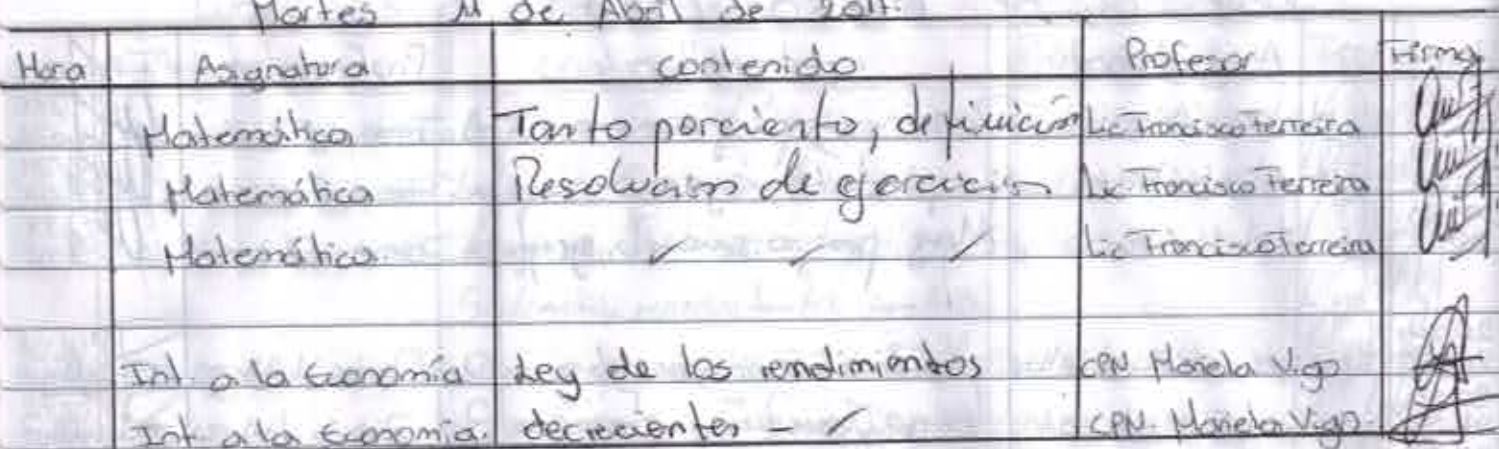 Martes 11 de Abril de 2017.
Hora Asignatura contenido Profesor Firma
Matemática Tanto porciento, definición Lic Francisco Ferreira
Matemática Resolución de ejercicios Lic Francisco Ferreira
Matemática Lic Francisco Ferreira
Int. a la Economía Ley de los rendimientos CPN Mariela Vigo
Int. a la Economía. decrecientes - CPN. Mariela Vigo.